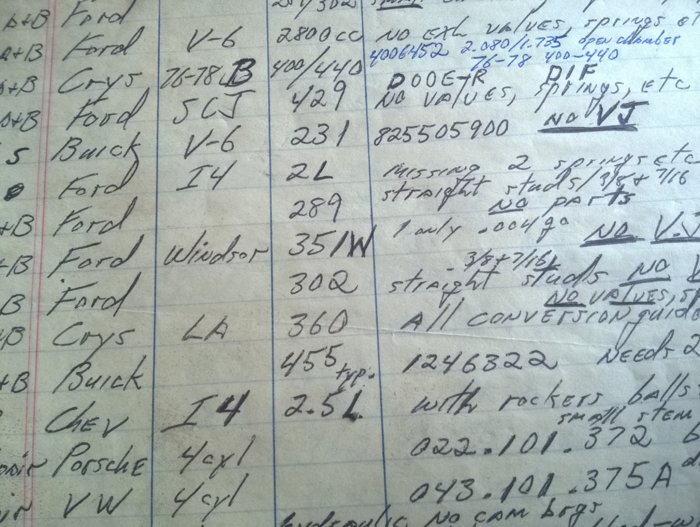 Ford 289/302
A+B Ford V-6 2800cc NO EXH VALVES, springs etc
4006452 2.080/1.735 open chamber
A+B Crys 76-78 B 400/440 76-78 400-440
A+B Ford SCJ 429 DOOE-R DIF
NO VALVES, springs, etc
S Buick V-6 231 825505900 NO VJ
Ford I4 2L missing 2 springs etc
+B Ford 289 straight studs/3/8+7/16
NO PARTS
+B Ford Windsor 351W 1 only .004/90 NO V.J
B Ford 302 straight studs -3/8+7/16 NO
NO VALVES,
+B Crys LA 360 All CONVERSION guide
+B Buick 455 typ. 1246322 NEEDS 2
Chev I4 2.5L with rockers balls
small stem
Porsche 4cyl 022.101.372
VW 4cyl 043.101.375A
hydraulic NO CAM brgs